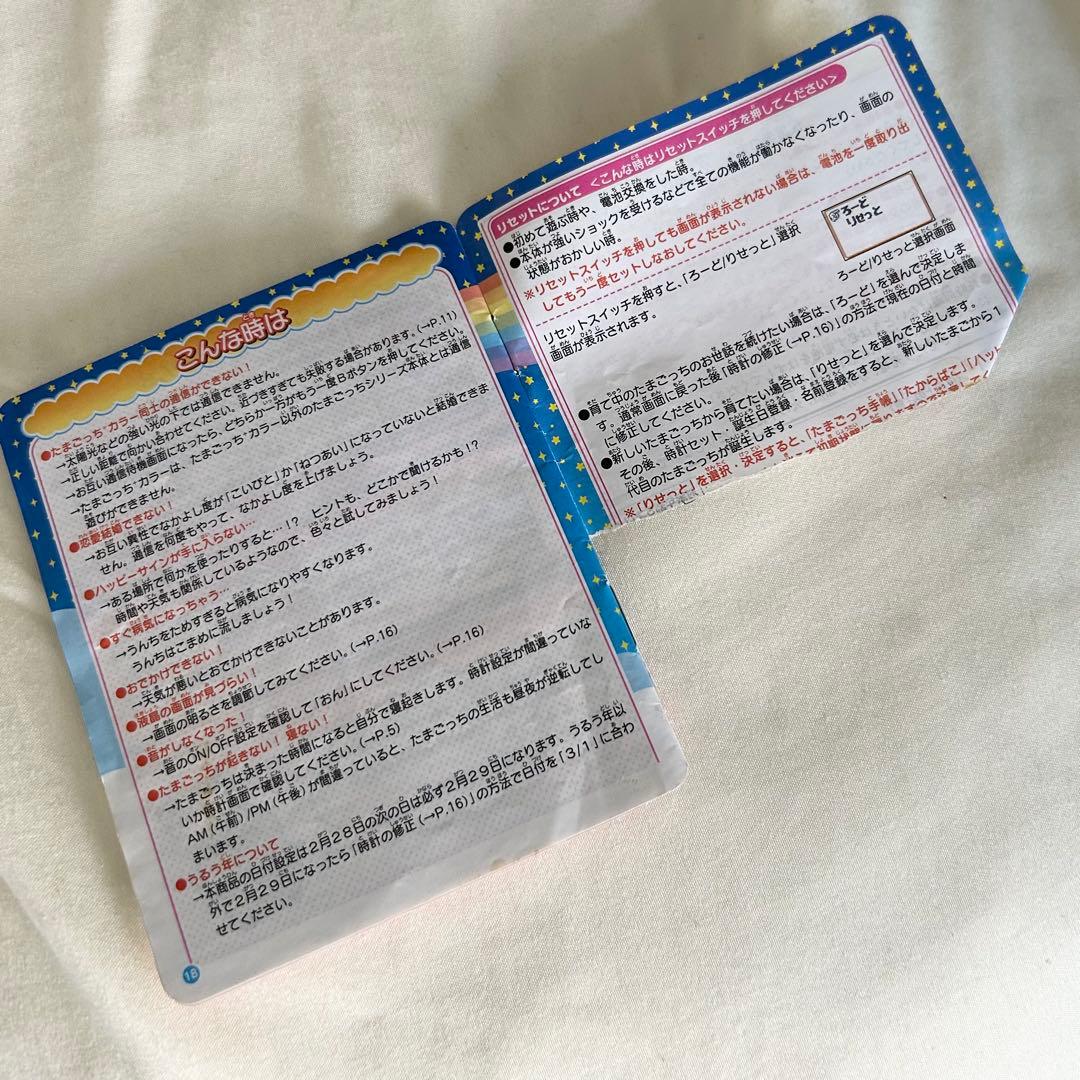 こんな時は
●たまごっち+カラー同士の通信ができない!
→太陽光などの強い光の下では通信できません。
→正しい距離で向かい合わせてください。近づきすぎても失敗する場合があります。(→P.11)
→お互い通信待機画面になったら、どちらか一方がもう一度Bボタンを押してください。
→たまごっち+カラーは、たまごっち+カラー以外のたまごっちシリーズ本体とは通信
遊びができません。
●恋愛結婚できない!
→お互い異性でなかよし度が「こいびと」か「ねつあい」になっていないと結婚できま
せん。通信を何度もやって、なかよし度を上げましょう。
●ハッピーサインが手に入らない…
→ある場所で何かを使ったりすると…!? ヒントも、どこかで聞けるかも!?
時間や天気も関係しているようなので、色々と試してみましょう!
●すぐ病気になっちゃう…
→うんちをためすぎると病気になりやすくなります。
うんちはこまめに流しましょう!
●おでかけできない!
→天気が悪いとおでかけできないことがあります。
●液晶の画面が見づらい!
→画面の明るさを調節してみてください。(→P.16)
●音がしなくなった!
→音のON/OFF設定を確認して「おん」にしてください。(→P.16)
●たまごっちが起きない! 寝ない!
→たまごっちは決まった時間になると自分で寝起きします。時計設定が間違っていな
いか時計画面で確認してください。(→P.5)
AM(午前)/PM(午後)が間違っていると、たまごっちの生活も昼夜が逆転してし
まいます。
●うるう年について
→本商品の日付設定は2月28日の次の日は必ず2月29日になります。うるう年以
外で2月29日になったら「時計の修正(→P.16)」の方法で日付を「3/1」に合わ
せてください。
18
リセットについて <こんな時はリセットスイッチを押してください>
●初めて遊ぶ時や、電池交換をした時。
●本体が強いショックを受けるなどで全ての機能が働かなくなったり、画面の
状態がおかしい時。
※リセットスイッチを押しても画面が表示されない場合は、電池を一度取り出
してもう一度セットしなおしてください。
リセットスイッチを押すと、「ろーど/りせっと」選択
画面が表示されます。
ろーど
りせっと
ろーど/りせっと選択画面
●育て中のたまごっちのお世話を続けたい場合は、「ろーど」を選んで決定しま
す。通常画面に戻った後「時計の修正(→P.16)」の方法で現在の日付と時間
に修正してください。
●新しいたまごっちから育てたい場合は、「りせっと」を選んで決定します。
その後、時計セット・誕生日登録・名前登録をすると、新しいたまごから1
代目のたまごっちが誕生します。
※「りせっと」を選択・決定すると、「たまごっち手帳」「たからばこ」「ハッピ